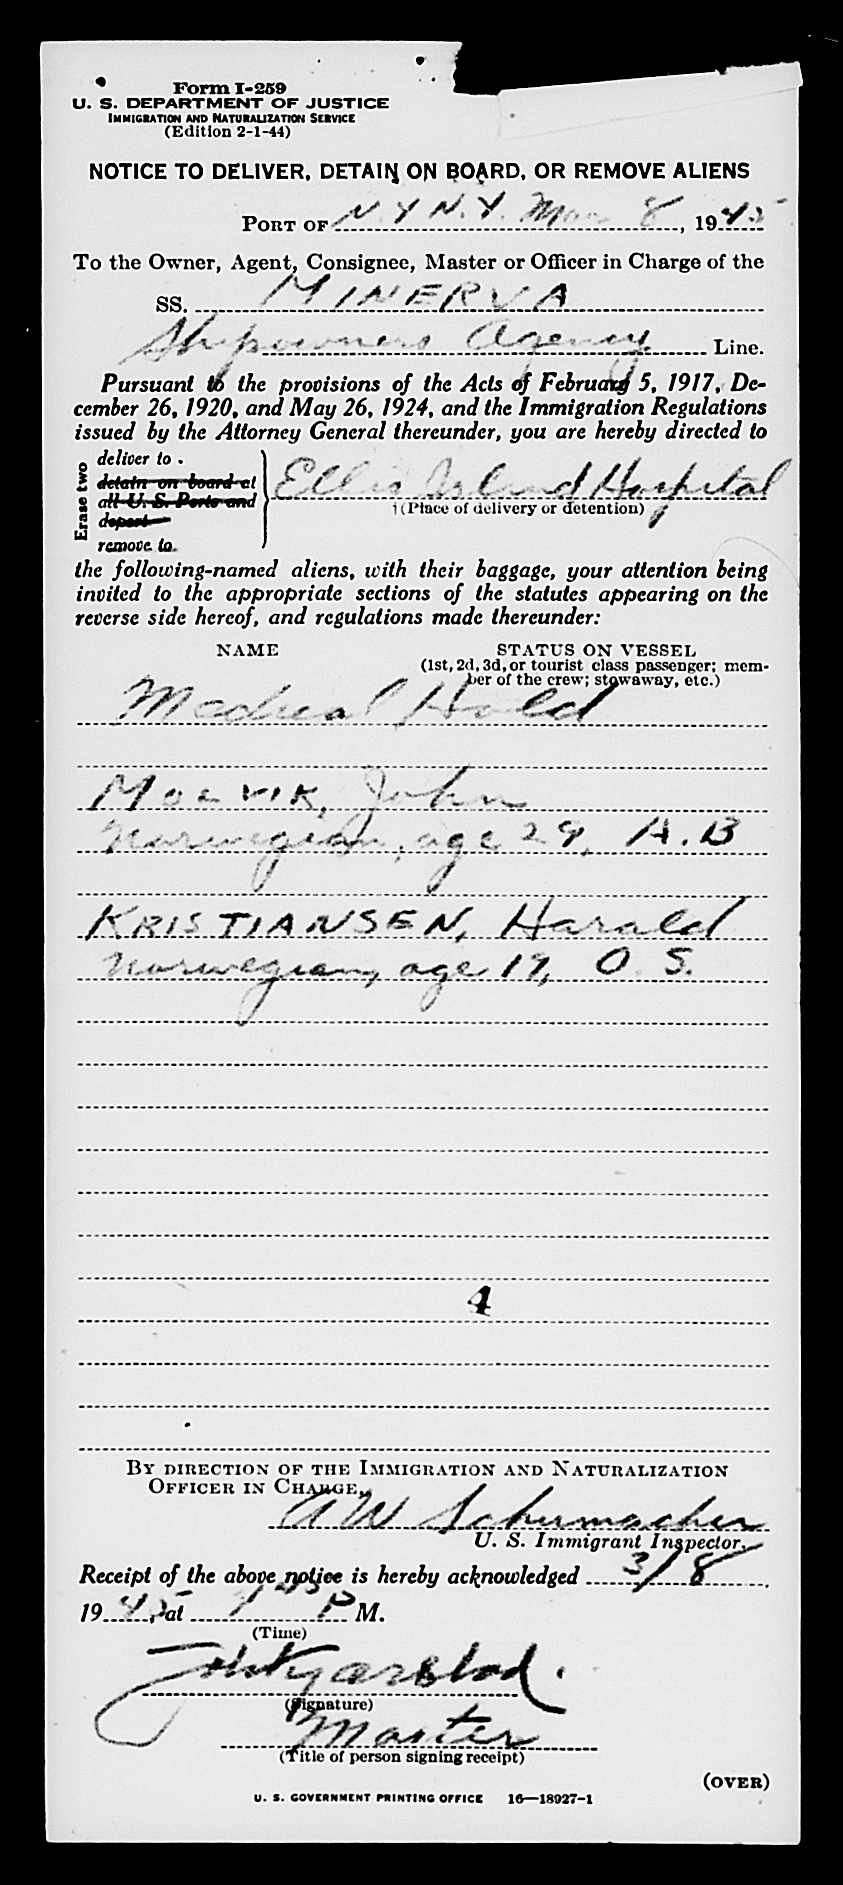 Form I-259
U. S. DEPARTMENT OF JUSTICE
IMMIGRATION AND NATURALIZATION SERVICE
(Edition 2-1-44)
NOTICE TO DELIVER, DETAIN ON BOARD, OR REMOVE ALIENS
PORT OF N.Y N.Y. Mar 8, 1945
To the Owner, Agent, Consignee, Master or Officer in Charge of the
SS. MINERVA
Shipowners Agency Line.
Pursuant to the provisions of the Acts of February 5, 1917, De-
cember 26, 1920, and May 26, 1924, and the Immigration Regulations
issued by the Attorney General thereunder, you are hereby directed to
Erase two
deliver to
detain on board at
all U. S. Ports and
depart
remove to
Ellis Island Hospital
(Place of delivery or detention)
the following-named aliens, with their baggage, your attention being
invited to the appropriate sections of the statutes appearing on the
reverse side hereof, and regulations made thereunder:
NAME STATUS ON VESSEL
(1st, 2d, 3d, or tourist class passenger; mem-
ber of the crew; stowaway, etc.)
Medical Hold
MOLVIK, John
Norwegian, age 29, A.B
KRISTIANSEN, Harald
Norwegian, age 19, O.S.
4
BY DIRECTION OF THE IMMIGRATION AND NATURALIZATION
OFFICER IN CHARGE,
A W Schumacher
U. S. Immigrant Inspector.
Receipt of the above notice is hereby acknowledged 3/8,
1945, at P M.
(Time)
(Signature)
Master
(Title of person signing receipt)
(OVER)
U. S. GOVERNMENT PRINTING OFFICE 16—18927-1